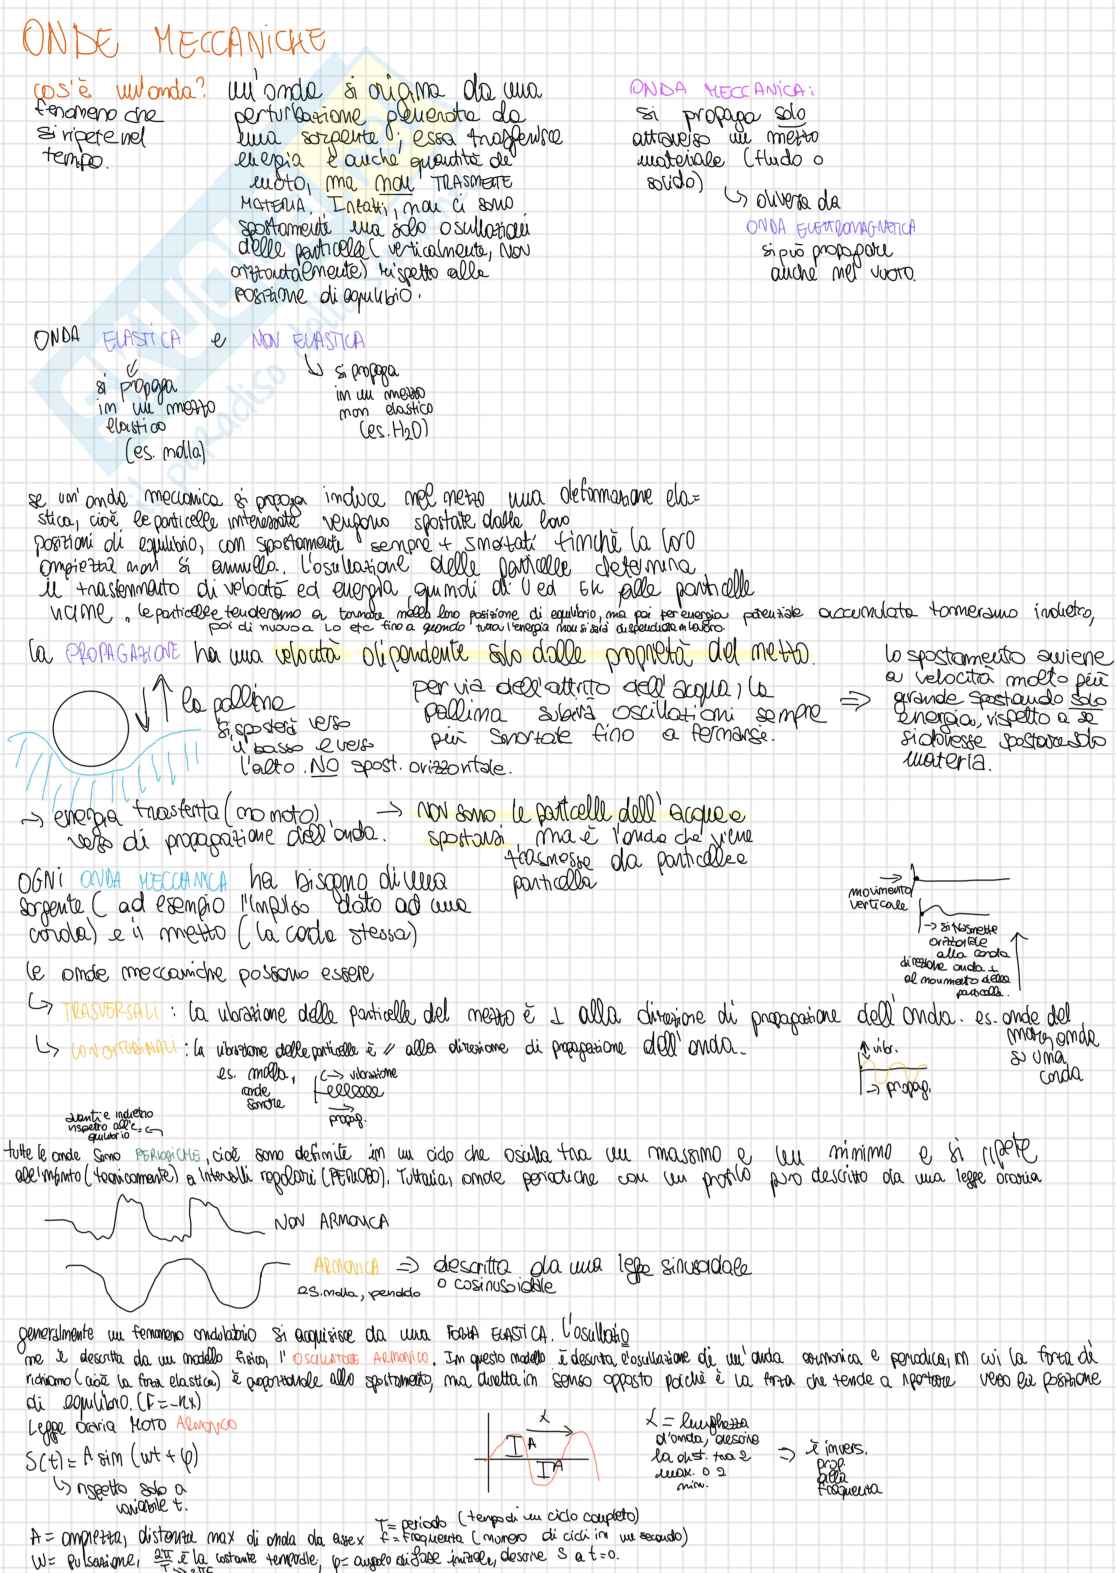 ONDE MECCANICHE
cos'è un'onda?
fenomeno che
si ripete nel
tempo.
un'onda si origina da una
perturbazione generata da
una sorgente; essa trasferisce
energia e anche quantità di
moto, ma non TRASMETTE
MATERIA. Infatti, non ci sono
spostamenti ma solo oscillazioni
delle particelle (verticalmente, NON
orizzontalmente) rispetto alla
posizione di equilibrio.
ONDA MECCANICA:
si propaga solo
attraverso un mezzo
materiale (fluido o
solido)
↳ diversa da
ONDA ELETTROMAGNETICA
si può propagare
anche nel vuoto.
ONDA ELASTICA e NON ELASTICA
si propaga
in un mezzo
elastico
(es. molla)
↳ si propaga
in un mezzo
non elastico
(es. H2O)
se un'onda meccanica si propaga induce nel mezzo una deformazione ela=
stica, cioè le particelle interessate vengono spostate dalle loro
posizioni di equilibrio, con spostamenti sempre + smorzati finchè la loro
ampiezza non si annulla. L'oscillazione delle particelle determina
il trasferimento di velocità ed energia, quindi di v ed Ek alle particelle
vicine. le particelle tenderanno a tornare nella loro posizione di equilibrio, ma poi per energia potenziale accumulata torneranno indietro,
poi di nuovo a lo etc fino a quando tutta l'energia non si sarà dispendiata in lavoro.
la PROPAGAZIONE ha una velocità dipendente solo dalle proprietà del mezzo.
la pallina
si sposterà verso
il basso e verso
l'alto. NO spost. orizzontale.
per via dell'attrito dell'acqua, la
pallina subirà oscillazioni sempre
più smorzate fino a fermarsi.
⇒ lo spostamento avviene
a velocità molto più
grande spostando solo
energia, rispetto a se
si dovesse spostare solo
materia.
→ energia trasferita (no moto)
verso di propagazione dell'onda.
→ NON sono le particelle dell'acqua a
spostarsi ma è l'onda che viene
trasmessa da particella a
particella
OGNI ONDA MECCANICA ha bisogno di una
sorgente (ad esempio l'impulso dato ad una
corda) e il mezzo (la corda stessa)
→
movimento
verticale
→ si trasmette
orizzontale
alla corda
direzione onda ⊥
al movimento della
particella.
le onde meccaniche possono essere
↳ TRASVERSALI: la vibrazione delle particelle del mezzo è ⊥ alla direzione di propagazione dell'onda. es. onde del
mare, onda
su una
corda
↳ LONGITUDINALI: la vibrazione delle particelle è // alla direzione di propagazione dell'onda.
es. molla,
onde
sonore
↔ vibrazione
→
propag.
↕ vibr.
→ propag.
avanti e indietro
rispetto all'e=
quilibrio
tutte le onde sono PERIODICHE, cioè sono definite in un ciclo che oscilla tra un massimo e un minimo e si ripete
all'infinito (teoricamente) a intervalli regolari (PERIODO). Tuttavia, onde periodiche con un profilo puro descritto da una legge oraria
NON ARMONICA
ARMONICA ⇒ descritta da una legge sinusoidale
o cosinusoidale
es. molla, pendolo
generalmente un fenomeno ondulatorio si acquisisce da una FORZA ELASTICA. L'oscillazio
ne è descritta da un modello fisico, l'OSCILLATORE ARMONICO. In questo modello è descritta l'oscillazione di un'onda armonica e periodica, in cui la forza di
richiamo (cioè la forza elastica) è proporzionale allo spostamento, ma diretta in senso opposto poichè è la forza che tende a riportare verso la posizione
di equilibrio. (F=-kx)
Legge oraria MOTO ARMONICO
S(t)= A sin (wt + φ)
↳ rispetto solo a
variabile t.
λ
A
A
λ = lunghezza
d'onda, descrive
la dist. tra 2
max. o 2
min.
⇒ è invers.
prop.
alla
frequenza
T= periodo (tempo di un ciclo completo)
A = ampiezza, distanza max di onda da asse x f= frequenza (numero di cicli in un secondo)
W= pulsazione, 2π/T è la costante temporale, φ= angolo di fase iniziale, descrive S a t=0.